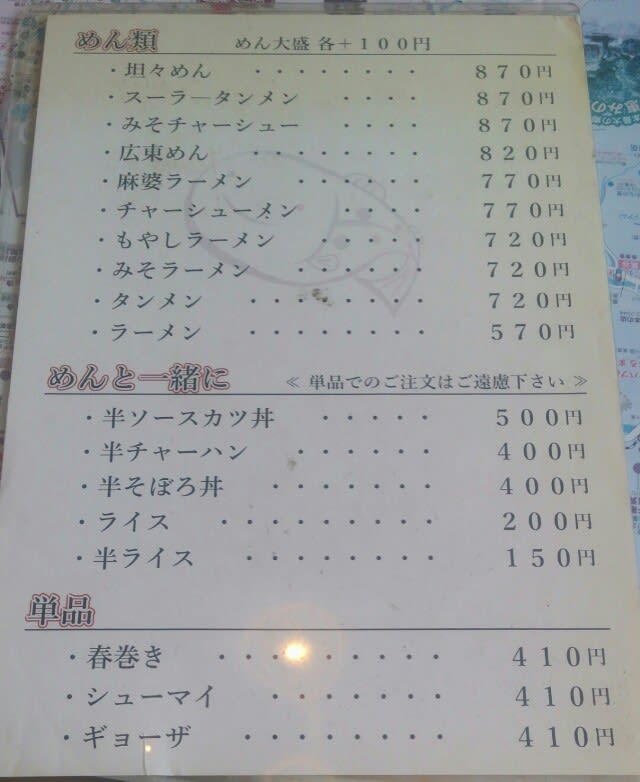 めん類 めん大盛 各+100円
・坦々めん ・・・・・・・・ 870円
・スーラ―タンメン ・・・・ 870円
・みそチャーシュー ・・・・ 870円
・広東めん ・・・・・・・・ 820円
・麻婆ラーメン ・・・・・・ 770円
・チャーシューメン ・・・・ 770円
・もやしラーメン ・・・・・ 720円
・みそラーメン ・・・・・・ 720円
・タンメン ・・・・・・・・ 720円
・ラーメン ・・・・・・・・ 570円
めんと一緒に ≪ 単品でのご注文はご遠慮下さい ≫
・半ソースカツ丼 ・・・・・ 500円
・半チャーハン ・・・・・・ 400円
・半そぼろ丼 ・・・・・・・ 400円
・ライス ・・・・・・・・・ 200円
・半ライス ・・・・・・・・ 150円
単品
・春巻き ・・・・・・・・・ 410円
・シューマイ ・・・・・・・ 410円
・ギョーザ ・・・・・・・・ 410円